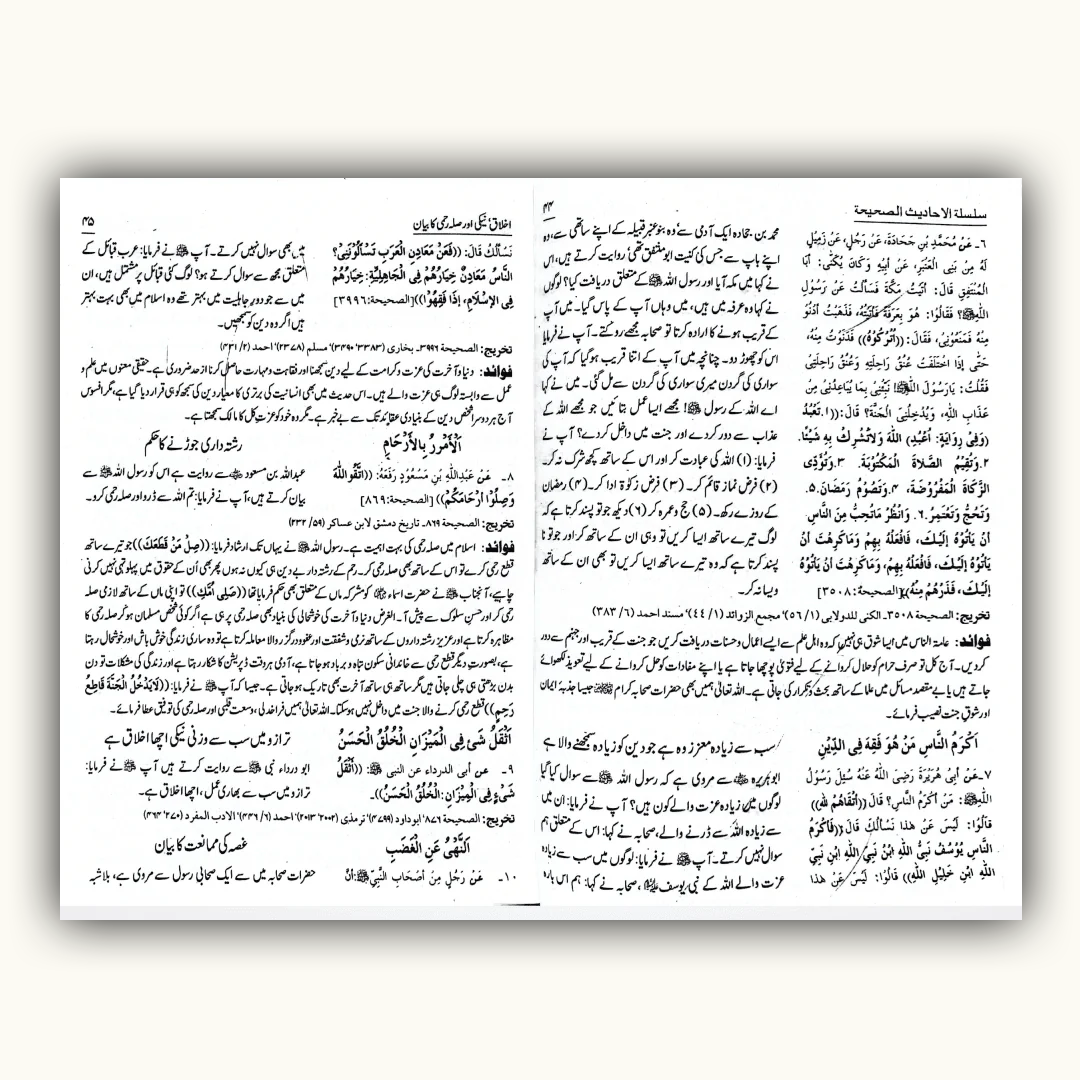 سلسلة الاحاديث الصحيحة
۴۴
۶۔ عَنْ مُحَمَّدِ بْنِ جُحَادَةَ، عَنْ رَجُلٍ، عَنْ زَمِيْلٍ
لَهُ مِنْ بَنِى الْعَنْبَرِ، عَنْ أَبِيْهِ وَكَانَ يُكَنّٰى: أَبَا
الْمُنْتَفِقِ قَالَ: أَتَيْتُ مَكَّةَ فَسَأَلْتُ عَنْ رَسُوْلِ
اللّٰهِ ﷺ؟ فَقَالُوْا: هُوَ بِعَرَفَةَ فَأَتَيْتُهُ، فَذَهَبْتُ أَدْنُوْ
مِنْهُ فَمَنَعُوْنِى، فَقَالَ: ((اُتْرُكُوْهُ)) فَدَنَوْتُ مِنْهُ،
حَتّٰى إِذَا اخْتَلَفَتْ عُنُقُ رَاحِلَتِهِ وَعُنُقُ رَاحِلَتِى
فَقُلْتُ: يَارَسُوْلَ اللّٰهِ ﷺ! نَبِّئْنِى بِمَا يُبَاعِدُنِىْ مِنْ
عَذَابِ اللّٰهِ، وَيُدْخِلُنِى الْجَنَّةَ؟ قَالَ: ((۱۔تَعْبُدُ
(وَفِى رِوَايَةٍ: أُعْبُدِ) اللّٰهَ وَلَاتُشْرِكُ بِهِ شَيْئًا.
۲۔وَتُقِيْمُ الصَّلَاةَ الْمَكْتُوْبَةَ. ۳۔وَتُؤَدِّى
الزَّكَاةَ الْمَفْرُوْضَةَ، ۴۔وَتَصُوْمُ رَمَضَانَ.۵۔
وَتَحُجُّ وَتَعْتَمِرُ.۶۔ وَانْظُرْ مَاتُحِبُّ مِنَ النَّاسِ
أَنْ يَأْتُوْهُ إِلَيْكَ، فَافْعَلْهُ بِهِمْ وَمَاكَرِهْتَ أَنْ
يَأْتُوْهُ إِلَيْكَ، فَافْعَلْهُ بِهِمْ، وَمَاكَرِهْتَ أَنْ يَأْتُوْهُ
إِلَيْكَ، فَذَرْهُمْ مِنْهُ)) [الصحيحة:۳۵۰۸]
محمد بن جحادہ ایک آدمی سے وہ بنو عنبر قبیلہ کے اپنے ساتھی سے، وہ
اپنے باپ سے جس کی کنیت ابو منتفق تھی روایت کرتے ہیں، اس
نے کہا میں مکہ آیا اور رسول اللہ ﷺ کے متعلق دریافت کیا؟ لوگوں
نے کہا وہ عرفہ میں ہیں، میں وہاں آپ کے پاس گیا۔ میں آپ
کے قریب ہونے کا ارادہ کرتا تو صحابہ مجھے روکتے۔ آپ نے فرمایا
اس کو چھوڑ دو۔ چنانچہ میں آپ کے اتنا قریب ہوگیا کہ آپ کی
سواری کی گردن میری سواری کی گردن سے مل گئی۔ میں نے کہا
اے اللہ کے رسول ﷺ! مجھے ایسا عمل بتائیں جو مجھے اللہ کے
عذاب سے دور کردے اور جنت میں داخل کردے؟ آپ نے
فرمایا: (۱) اللہ کی عبادت کر اور اس کے ساتھ کچھ شرک نہ کر۔
(۲) فرض نماز قائم کر۔ (۳) فرض زکوٰۃ ادا کر۔ (۴) رمضان
کے روزے رکھ۔ (۵) حج و عمرہ کر (۶) دیکھ جو تو پسند کرتا ہے کہ
لوگ تیرے ساتھ ایسا کریں تو وہی ان کے ساتھ کر اور جو تو نا
پسند کرتا ہے کہ وہ تیرے ساتھ ایسا کریں تو بھی ان کے ساتھ
ویسا نہ کر۔
تخریج: الصحیحة ۳۵۰۸۔ الکنی للدولابی (۱/ ۵۶)' مجمع الزوائد (۱/ ۴۴)' مسند احمد (۶/ ۳۸۳)
فوائد: عامۃ الناس میں ایسا شوق ہی نہیں کہ وہ اہل علم سے ایسے اعمال وحسنات دریافت کریں جو جنت کے قریب اور جہنم سے دور
کردیں۔ آج کل تو صرف حرام کو حلال کروانے کے لیے فتویٰ پوچھا جاتا ہے یا اپنے مفادات کو حل کروانے کے لیے تعویذ لکھوائے
جاتے ہیں یا بے مقصد مسائل میں علما کے ساتھ بحث وتکرار کی جاتی ہے۔ اللہ تعالیٰ ہمیں بھی حضرات صحابہ کرام جیسا جذبۂ ایمان
اور شوقِ جنت نصیب فرمائے۔
اَكْرَمُ النَّاسِ مَنْ هُوَ فَقِهَ فِى الدِّيْنِ
سب سے زیادہ معزز وہ ہے جو دین کو زیادہ سمجھنے والا ہے
۷۔عَنْ أَبِىْ هُرَيْرَةَ رَضِىَ اللّٰهُ عَنْهُ سُئِلَ رَسُوْلُ
اللّٰهِ ﷺ: مَنْ أَكْرَمُ النَّاسِ؟ قَالَ ((أَتْقَاهُمْ لِلّٰهِ))
قَالُوْا: لَيْسَ عَنْ هٰذَا نَسْأَلُكَ قَالَ ((فَأَكْرَمُ
النَّاسِ يُوْسُفُ نَبِىُّ اللّٰهِ ابْنُ نَبِىِّ اللّٰهِ ابْنِ نَبِىِّ
اللّٰهِ ابْنِ خَلِيْلِ اللّٰهِ)) قَالُوْا: لَيْسَ عَنْ هٰذَا
ابو ہریرہ سے مروی ہے کہ رسول اللہ ﷺ سے سوال کیا گیا
لوگوں میں زیادہ عزت والے کون ہیں؟ آپ نے فرمایا: ان میں
سے زیادہ اللہ سے ڈرنے والے، صحابہ نے کہا: اس کے متعلق ہم
سوال نہیں کرتے۔ آپ ﷺ نے فرمایا: لوگوں میں سب سے زیادہ
عزت والے اللہ کے نبی یوسف، صحابہ نے کہا: ہم اس بارہ
اخلاق، نیکی اور صلہ رحمی کا بیان
۴۵
نَسْأَلُكَ قَالَ: ((فَعَنْ مَعَادِنِ الْعَرَبِ تَسْأَلُوْنِىْ؟
النَّاسُ مَعَادِنُ خِيَارُهُمْ فِى الْجَاهِلِيَّةِ: خِيَارُهُمْ
فِى الإِسْلَامِ، إِذَا فَقِهُوْا))[الصحيحة:۳۹۹۶]
میں بھی سوال نہیں کرتے۔ آپ ﷺ نے فرمایا: عرب قبائل کے
متعلق مجھ سے سوال کرتے ہو؟ لوگ کئی قبائل پر مشتمل ہیں، ان
میں سے جو دور جاہلیت میں بہتر تھے وہ اسلام میں بھی بہت بہتر
ہیں اگر وہ دین کو سمجھیں۔
تخریج: الصحیحة ۳۹۹۶۔ بخاری (۳۳۸۳' ۳۴۹۰)' مسلم (۲۳۷۸)' احمد (۲/ ۴۳۱)
فوائد: دنیا و آخرت کی عزت و کرامت کے لیے دین سمجھنا اور نقاہت ومہارت حاصل کرنا از حد ضروری ہے۔ حقیقی معنوں میں علم و
عمل سے وابستہ لوگ ہی عزت والے ہیں۔ اس حدیث میں بھی انسانیت کی برتری کا معیار دین کی سمجھ کو ہی قرار دیا گیا ہے، مگر افسوس
آج ہر دوسرا شخص دین کے بنیادی عقائد تک سے بے خبر ہے۔ مگر وہ خود کو عزتِ کل کا مالک سمجھتا ہے۔
اَلْأَمْرُ بِالْأَرْحَامِ
رشتہ داری جوڑنے کا حکم
۸۔ عَنْ عَبْدِاللّٰهِ بْنِ مَسْعُوْدٍ رَفَعَهُ: ((اتَّقُوااللّٰهَ
وَصِلُوْا أَرْحَامَكُمْ)) [الصحيحة:۸۶۹]
عبداللہ بن مسعود سے روایت ہے اس کو رسول اللہ ﷺ سے
بیان کرتے ہیں، آپ نے فرمایا: تم اللہ سے ڈرو اور صلہ رحمی کرو۔
تخریج: الصحیحة ۸۶۹۔ تاریخ دمشق لابن عساکر (۵۹/ ۲۳۲)
فوائد: اسلام میں صلہ رحمی کی بہت اہمیت ہے۔ رسول اللہ ﷺ نے یہاں تک ارشاد فرمایا: ((صِلْ مَنْ قَطَعَكَ)) جو تیرے ساتھ
قطع رحمی کرے تو اس کے ساتھ بھی صلہ رحمی کر۔ رحم کے رشتہ دار بے دین ہی کیوں نہ ہوں پھر بھی اُن کے حقوق میں پہلو تہی نہیں کرنی
چاہیے، آنجناب ﷺ نے حضرت اسماء کو مشرکہ ماں کے متعلق بھی حکم فرمایا تھا ((صَلِى أُمَّكِ)) تو اپنی ماں کے ساتھ لازمی صلہ
رحمی کر اور حسن سلوک سے پیش آ۔ الغرض دنیا و آخرت کی خوشحالی کی بنیاد بھی صلہ رحمی پر ہی ہے اگر کوئی شخص مسلمان ہوکر صلہ رحمی کا
مظاہرہ کرتا ہے اور عزیز رشتہ داروں کے ساتھ نرمی و شفقت اور عفو و درگزر والا معاملہ کرتا ہے تو وہ ساری زندگی خوش باش اور خوشحال رہتا
ہے، بصورتِ دیگر قطع رحمی سے خاندانی سکون تباہ و برباد ہو جاتا ہے، آدمی ہر وقت ڈپریشن کا شکار رہتا ہے اور زندگی کی مشکلات تو دن
بدن بڑھتی ہی چلی جاتی ہیں مگر ساتھ ہی ساتھ آخرت بھی تاریک ہو جاتی ہے۔ جیسا کہ آپ ﷺ نے فرمایا: ((لَايَدْخُلُ الْجَنَّةَ قَاطِعُ
رَحِمٍ)) قطع رحمی کرنے والا جنت میں داخل نہیں ہوسکتا۔ اللہ تعالیٰ ہمیں فراخدلی، وسعت قلبی اور صلہ رحمی کی توفیق عطا فرمائے۔
اَثْقَلُ شَىْءٍ فِى الْمِيْزَانِ الْخُلُقُ الْحَسَنُ
ترازو میں سب سے وزنی نیکی اچھا اخلاق ہے
۹۔ عن أبى الدرداء عن النبى ﷺ: ((أَثْقَلُ
شَىْءٍ فِى الْمِيْزَانِ:الْخُلُقُ الْحَسَنُ))۔
ابو درداء نبی ﷺ سے روایت کرتے ہیں آپ ﷺ نے فرمایا:
ترازو میں سب سے بھاری عمل، اچھا اخلاق ہے۔
تخریج: الصحیحة ۸۷۶' ابوداود (۴۷۹۹)' ترمذی (۲۰۰۲' ۲۰۱۳)' احمد (۶/ ۴۴۶)' الادب المفرد (۲۷۰' ۴۶۴)
اَلنَّهْىُ عَنِ الْغَضَبِ
غصہ کی ممانعت کا بیان
۱۰۔ عَنْ رَجُلٍ مِنْ أَصْحَابِ النَّبِىِّ ﷺ:أَنَّ
حضرات صحابہ میں سے ایک صحابی رسول سے مروی ہے، بلاشبہ